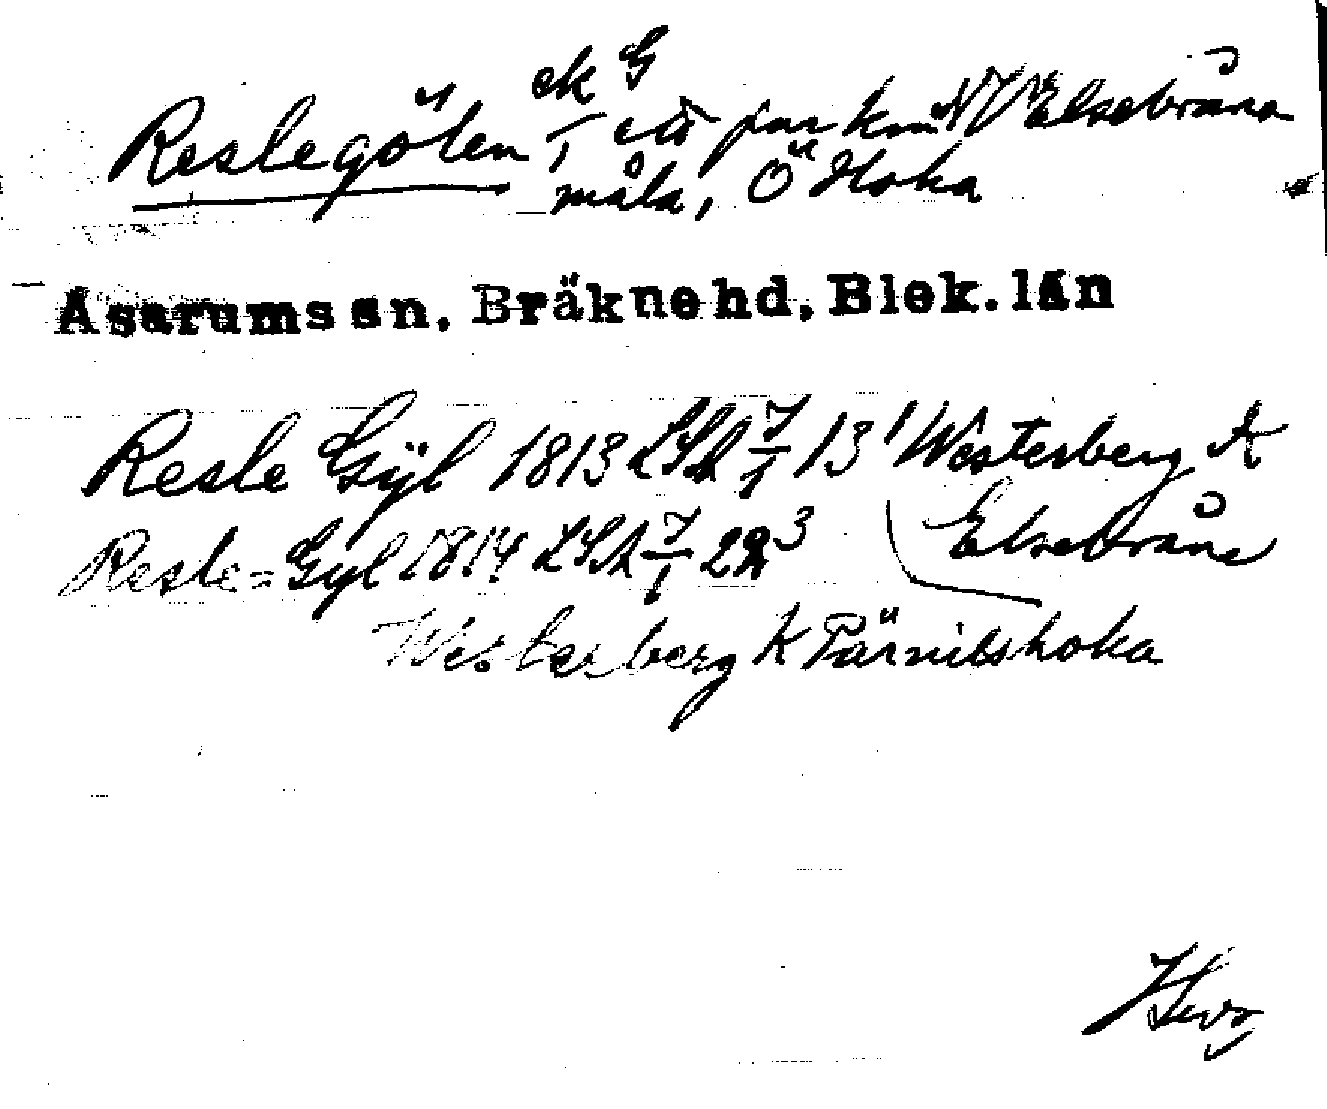 ek G
Reslegölen, ett par km NV Elsebråna
måla, Ö Hoka
Asarums sn, Bräkne hd, Blek. län
Resle Gyl 1813 LSA 7/1 13' Westerberg K
Elsebråne
Resle=Gyl 1814 LSA 7/1 22³
Westerberg K Pärnilshoka